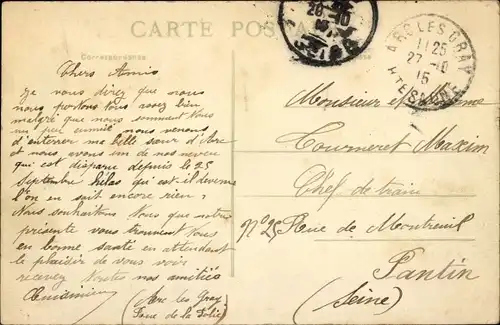 CARTE POSTALE
Correspondance
ARC LES GRAY
11 25
27-10
15
HTE SAONE
Chers Amis
Je vous direz que nous
nous portons tous assez bien
malgré que nous sommes tous
un peu ennuié. nous venons
d'enterrer ma belle sœur d'Arc
et nous avons un de nos neveu
qui est disparu depuis le 25
Septembre hélas qu'est il devenu
l'on en sait encore rien ?
Nous souhaitons que notre
présente vous trouvent tous
en bonne santé en attendant
le plaisir de vous voir
recevez toutes nos amitiés
(Arc les Gray
Rue de la Folie)
Monsieur et Madame
Tourneret Maxim
Chef de train
N° 25 Rue de Montreuil
Pantin
(Seine)